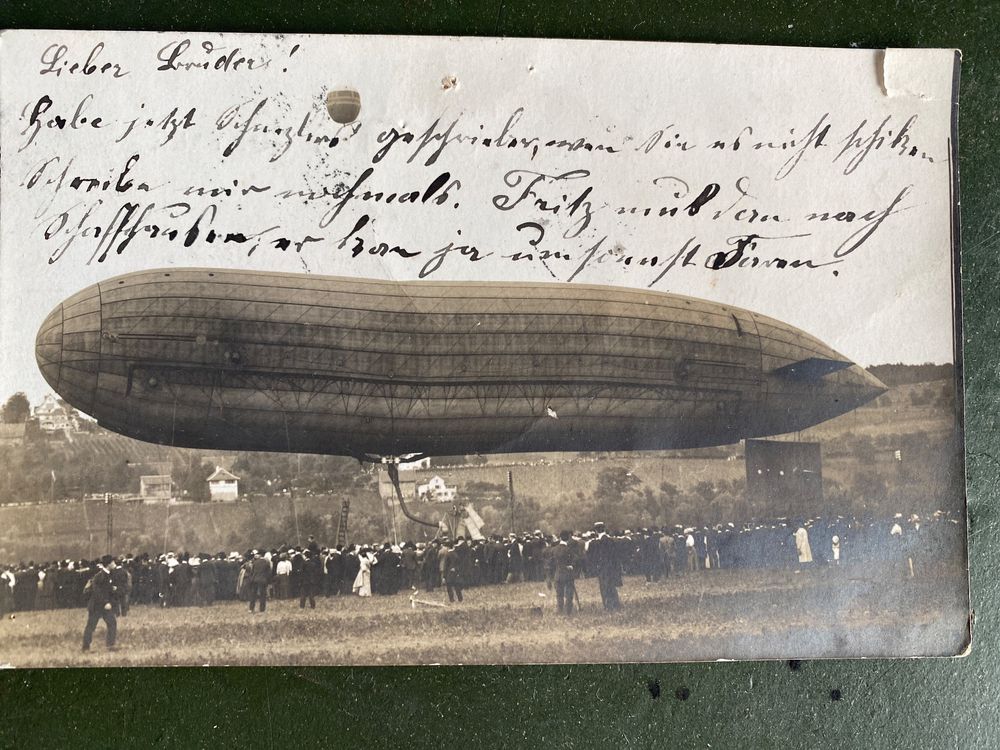 Lieber Bruder!
Habe jetzt geschrieben, wen Sie es nicht schiken
Schreibe mir nochmals. Fritz muß dan nach
Schaffhausen, er kan ja umsonst Faren.